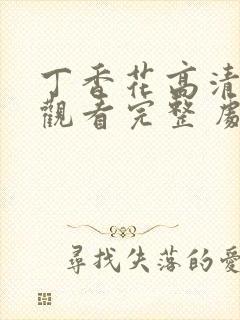 丁香花高清
觀看完整
尋找失落的愛